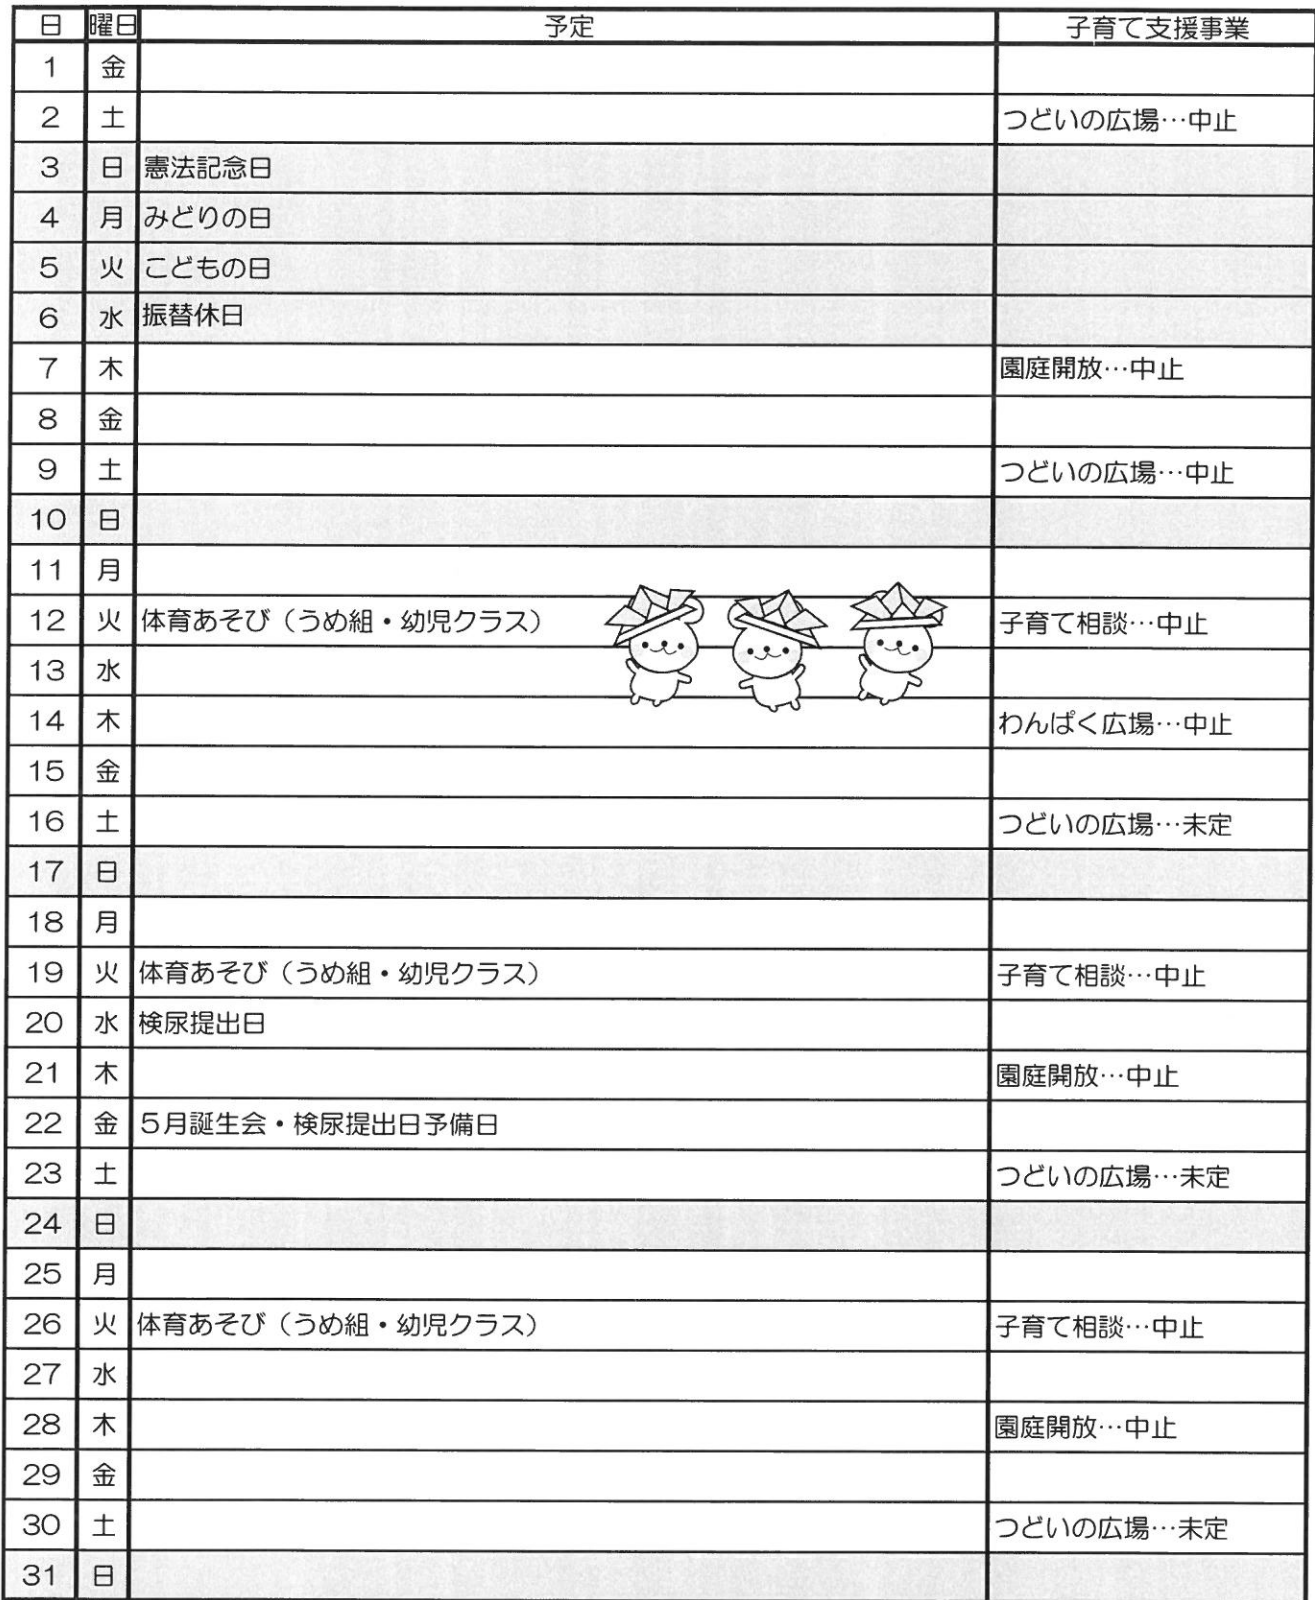 日 曜日 予定 子育て支援事業
1 金
2 土 つどいの広場…中止
3 日 憲法記念日
4 月 みどりの日
5 火 こどもの日
6 水 振替休日
7 木 園庭開放…中止
8 金
9 土 つどいの広場…中止
10 日
11 月
12 火 体育あそび（うめ組・幼児クラス） 子育て相談…中止
13 水
14 木 わんぱく広場…中止
15 金
16 土 つどいの広場…未定
17 日
18 月
19 火 体育あそび（うめ組・幼児クラス） 子育て相談…中止
20 水 検尿提出日
21 木 園庭開放…中止
22 金 5月誕生会・検尿提出日予備日
23 土 つどいの広場…未定
24 日
25 月
26 火 体育あそび（うめ組・幼児クラス） 子育て相談…中止
27 水
28 木 園庭開放…中止
29 金
30 土 つどいの広場…未定
31 日